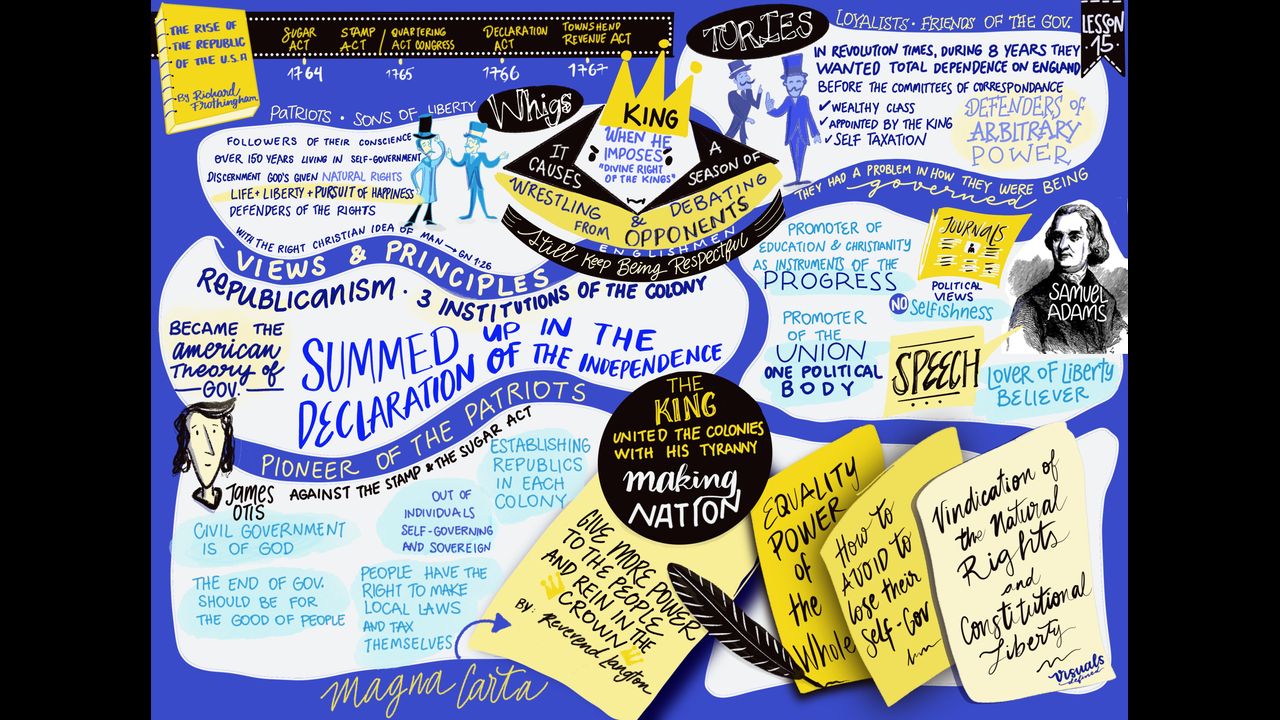 THE RISE OF
THE REPUBLIC
OF THE U.S.A
By Richard
Frothingham
SUGAR
ACT
STAMP
ACT
QUARTERING
ACT CONGRESS
DECLARATION
ACT
TOWNSHEND
REVENUE ACT
1764
1765
1766
1767
TORIES
LOYALISTS · FRIENDS OF THE GOV.
LESSON
·15·
IN REVOLUTION TIMES, DURING 8 YEARS THEY
WANTED TOTAL DEPENDENCE ON ENGLAND
BEFORE THE COMMITTEES OF CORRESPONDANCE
✓ WEALTHY CLASS
✓ APPOINTED BY THE KING
✓ SELF TAXATION
DEFENDERS OF
ARBITRARY
POWER
THEY HAD A PROBLEM IN HOW THEY WERE BEING
governed
PATRIOTS · SONS OF LIBERTY
Whigs
FOLLOWERS OF THEIR CONSCIENCE
OVER 150 YEARS LIVING IN SELF-GOVERNMENT
DISCERNMENT GOD'S GIVEN NATURAL RIGHTS
LIFE + LIBERTY + PURSUIT OF HAPPINESS
DEFENDERS OF THE RIGHTS
WITH THE RIGHT CHRISTIAN IDEA OF MAN → GN 1:26
KING
WHEN HE
IMPOSES
"DIVINE RIGHT
OF THE KINGS"
IT
CAUSES
A
SEASON OF
WRESTLING
FROM
&
DEBATING
OPPONENTS
ENGLISHMEN
Still Keep Being Respectful
VIEWS & PRINCIPLES
REPUBLICANISM · 3 INSTITUTIONS OF THE COLONY
BECAME THE
american
Theory of
GOV.
SUMMED UP IN THE
DECLARATION OF THE INDEPENDENCE
PROMOTER OF
EDUCATION & CHRISTIANITY
AS INSTRUMENTS OF THE
PROGRESS
JOURNALS
POLITICAL
VIEWS
NO Selfishness
SAMUEL
ADAMS
PROMOTER
OF THE
UNION
ONE POLITICAL
BODY
SPEECH
LOVER OF LIBERTY
BELIEVER
PIONEER OF THE PATRIOTS
JAMES
OTIS
AGAINST THE STAMP & THE SUGAR ACT
CIVIL GOVERNMENT
IS OF GOD
THE END OF GOV.
SHOULD BE FOR
THE GOOD OF PEOPLE
OUT OF
INDIVIDUALS
SELF-GOVERNING
AND SOVEREIGN
ESTABLISHING
REPUBLICS
IN EACH
COLONY
PEOPLE HAVE THE
RIGHT TO MAKE
LOCAL LAWS
AND TAX
THEMSELVES
Magna Carta
GIVE MORE POWER
TO THE PEOPLE
AND REIN IN THE
CROWN
BY: Reverend Langton
THE
KING
UNITED THE COLONIES
WITH HIS TYRANNY
making
NATION
EQUALITY
POWER
of
the
Whole
How to
AVOID to
lose their
Self-Gov
Vindication of
the Natural
Rights
and
Constitutional
Liberty
visuals
defined